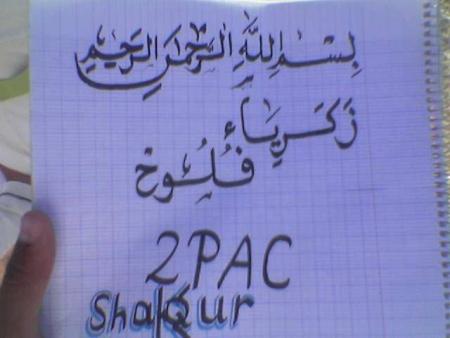 بِسْمِ اللَّهِ الرَّحْمَٰنِ الرَّحِيمِ
زَكَرِيَاء
فُلُّوح
2PAC
ShaKur